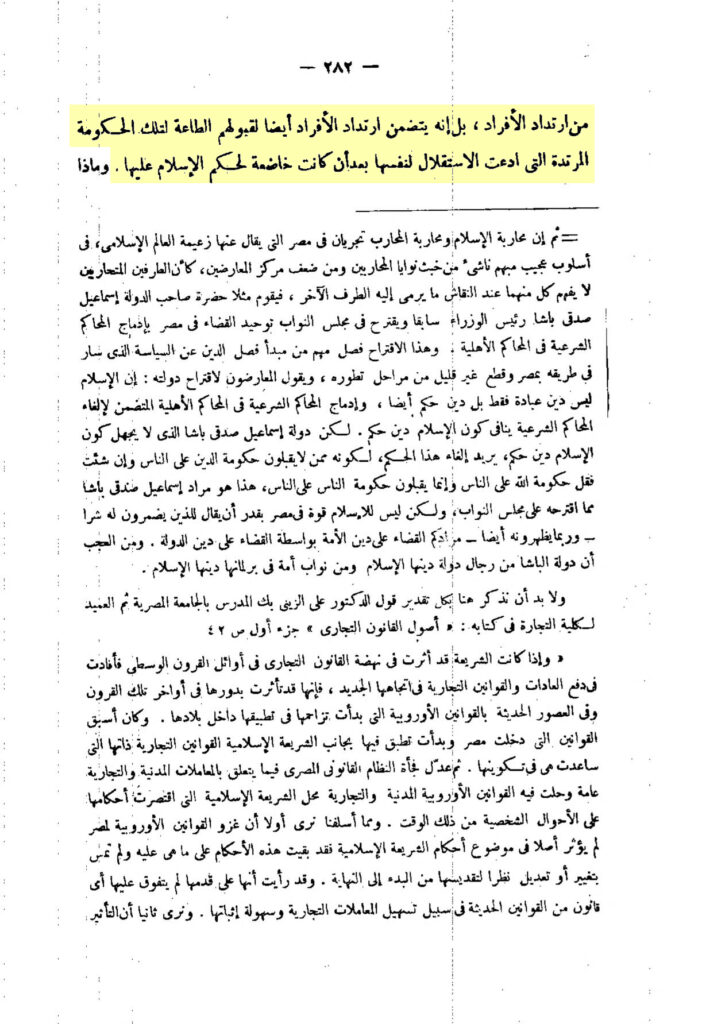 — ٢٨٢ —
من ارتداد الأفراد ، بل إنه يتضمن ارتداد الأفراد أيضا لقبولهم الطاعة لتلك الحكومة
المرتدة التى ادعت الاستقلال لنفسها بعد أن كانت خاضعة لحكم الإسلام عليها . وماذا
= ثم إن محاربة الإسلام ومحاربة المحارب تجريان فى مصر التى يقال عنها زعيمة العالم الإسلامى، فى
أسلوب عجيب مبهم ناشئ من خبث نوايا المحاربين ومن ضعف مركز المعارضين، كأن العارفين المتحاربين
لا يفهم كل منهما عند النقاش ما يرمى إليه الطرف الآخر ، فيقوم مثلا حضرة صاحب الدولة إسماعيل
صدقى باشا رئيس الوزراء سابقا ويقترح فى مجلس النواب توحيد القضاء فى مصر بإدماج المحاكم
الشرعية فى المحاكم الأهلية . وهذا الاقتراح فصل مهم من مبدأ فصل الدين عن السياسة الذى سار
فى طريقه بمصر وقطع غير قليل من مراحل تطوره ، ويقول المعارضون لاقتراح دولته : إن الإسلام
ليس دين عبادة فقط بل دين حكم أيضا ، وإدماج المحاكم الشرعية فى المحاكم الأهلية المتضمن لإلغاء
المحاكم الشرعية ينافى كون الإسلام دين حكم . لكن دولة إسماعيل صدقى باشا الذى لا يجهل كون
الإسلام دين حكم، يريد إلغاء هذا الحكم، لكونه ممن لا يقبلون حكومة الدين على الناس وإن شئت
فقل حكومة الله على الناس وإنما يقبلون حكومة الناس على الناس، هذا هو مراد إسماعيل صدقى باشا
مما اقترحه على مجلس النواب، ولكن ليس للإسلام قوة فى مصر بقدر أن يقال للذين يضمرون له شرا
ــ وربما يظهرونه أيضا ــ مرادكم القضاء على دين الأمة بواسطة القضاء على دين الدولة . ومن العجب
أن دولة الباشا من رجال دولة دينها الإسلام ومن نواب أمة فى برلمانها دينها الإسلام .
ولا بد أن نذكر هنا بكل تقدير قول الدكتور على الزينى بك المدرس بالجامعة المصرية ثم العميد
لكلية التجارة فى كتابه : « أصول القانون التجارى » جزء أول ص ٤٢
« وإذا كانت الشريعة قد أثرت فى نهضة القانون التجارى فى أوائل القرون الوسطى فأفادت
فى دفع العادات والقوانين التجارية فى اتجاهها الجديد ، فإنها قد تأثرت بدورها فى أواخر تلك القرون
وفى العصور الحديثة بالقوانين الأوروبية التى بدأت تزاحمها فى تطبيقها داخل بلادها . وكان أسبق
القوانين التى دخلت مصر وبدأت تطبق فيها بجانب الشريعة الإسلامية القوانين التجارية ذاتها التى
ساعدت هى فى تكوينها . ثم عدّل فجأة النظام القانونى المصرى فيما يتعلق بالمعاملات المدنية والتجارية
عامة وحلت فيه القوانين الأوروبية المدنية والتجارية محل الشريعة الإسلامية التى اقتصرت أحكامها
على الأحوال الشخصية من ذلك الوقت . ومما أسلفنا نرى أولا أن غزو القوانين الأوروبية لمصر
لم يؤثر أصلا فى موضوع أحكام الشريعة الإسلامية فقد بقيت هذه الأحكام على ما هى عليه ولم تمس
بتغيير أو تعديل نظرا لتقديسها من البدء إلى النهاية . وقد رأيت أنها على قدمها لم يتفوق عليها أى
قانون من القوانين الحديثة فى سبيل تسهيل المعاملات التجارية وسهولة إثباتها . ونرى ثانيا أن التأثير